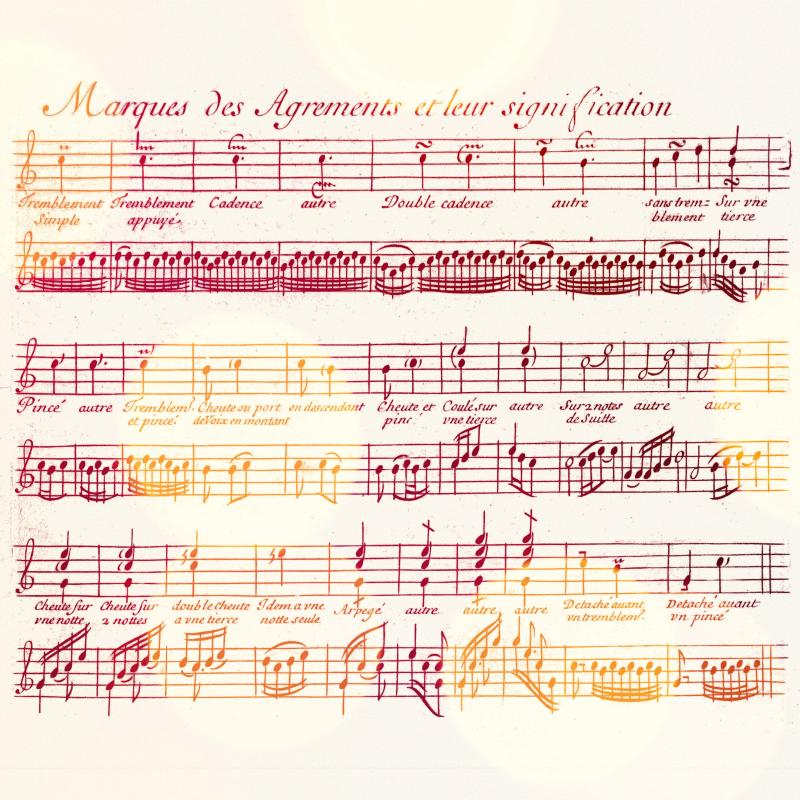 Marques des Agrements et leur signification
Tremblement Tremblement Cadence autre Double cadence autre sans trem= Sur vne
Simple appuyé blement tierce
Pincé autre Tremblemt. Cheute ou port en descendant Cheute et Coulé sur autre Sur 2 notes autre autre
et pincé de Voix en montant pincé vne tierce de Suitte
Cheute sur Cheute sur double cheute Idem a vne Arpegé autre autre autre Detaché auant Detaché auant
vne notte 2 nottes a vne tierce notte seule vn tremblemt. vn pincé